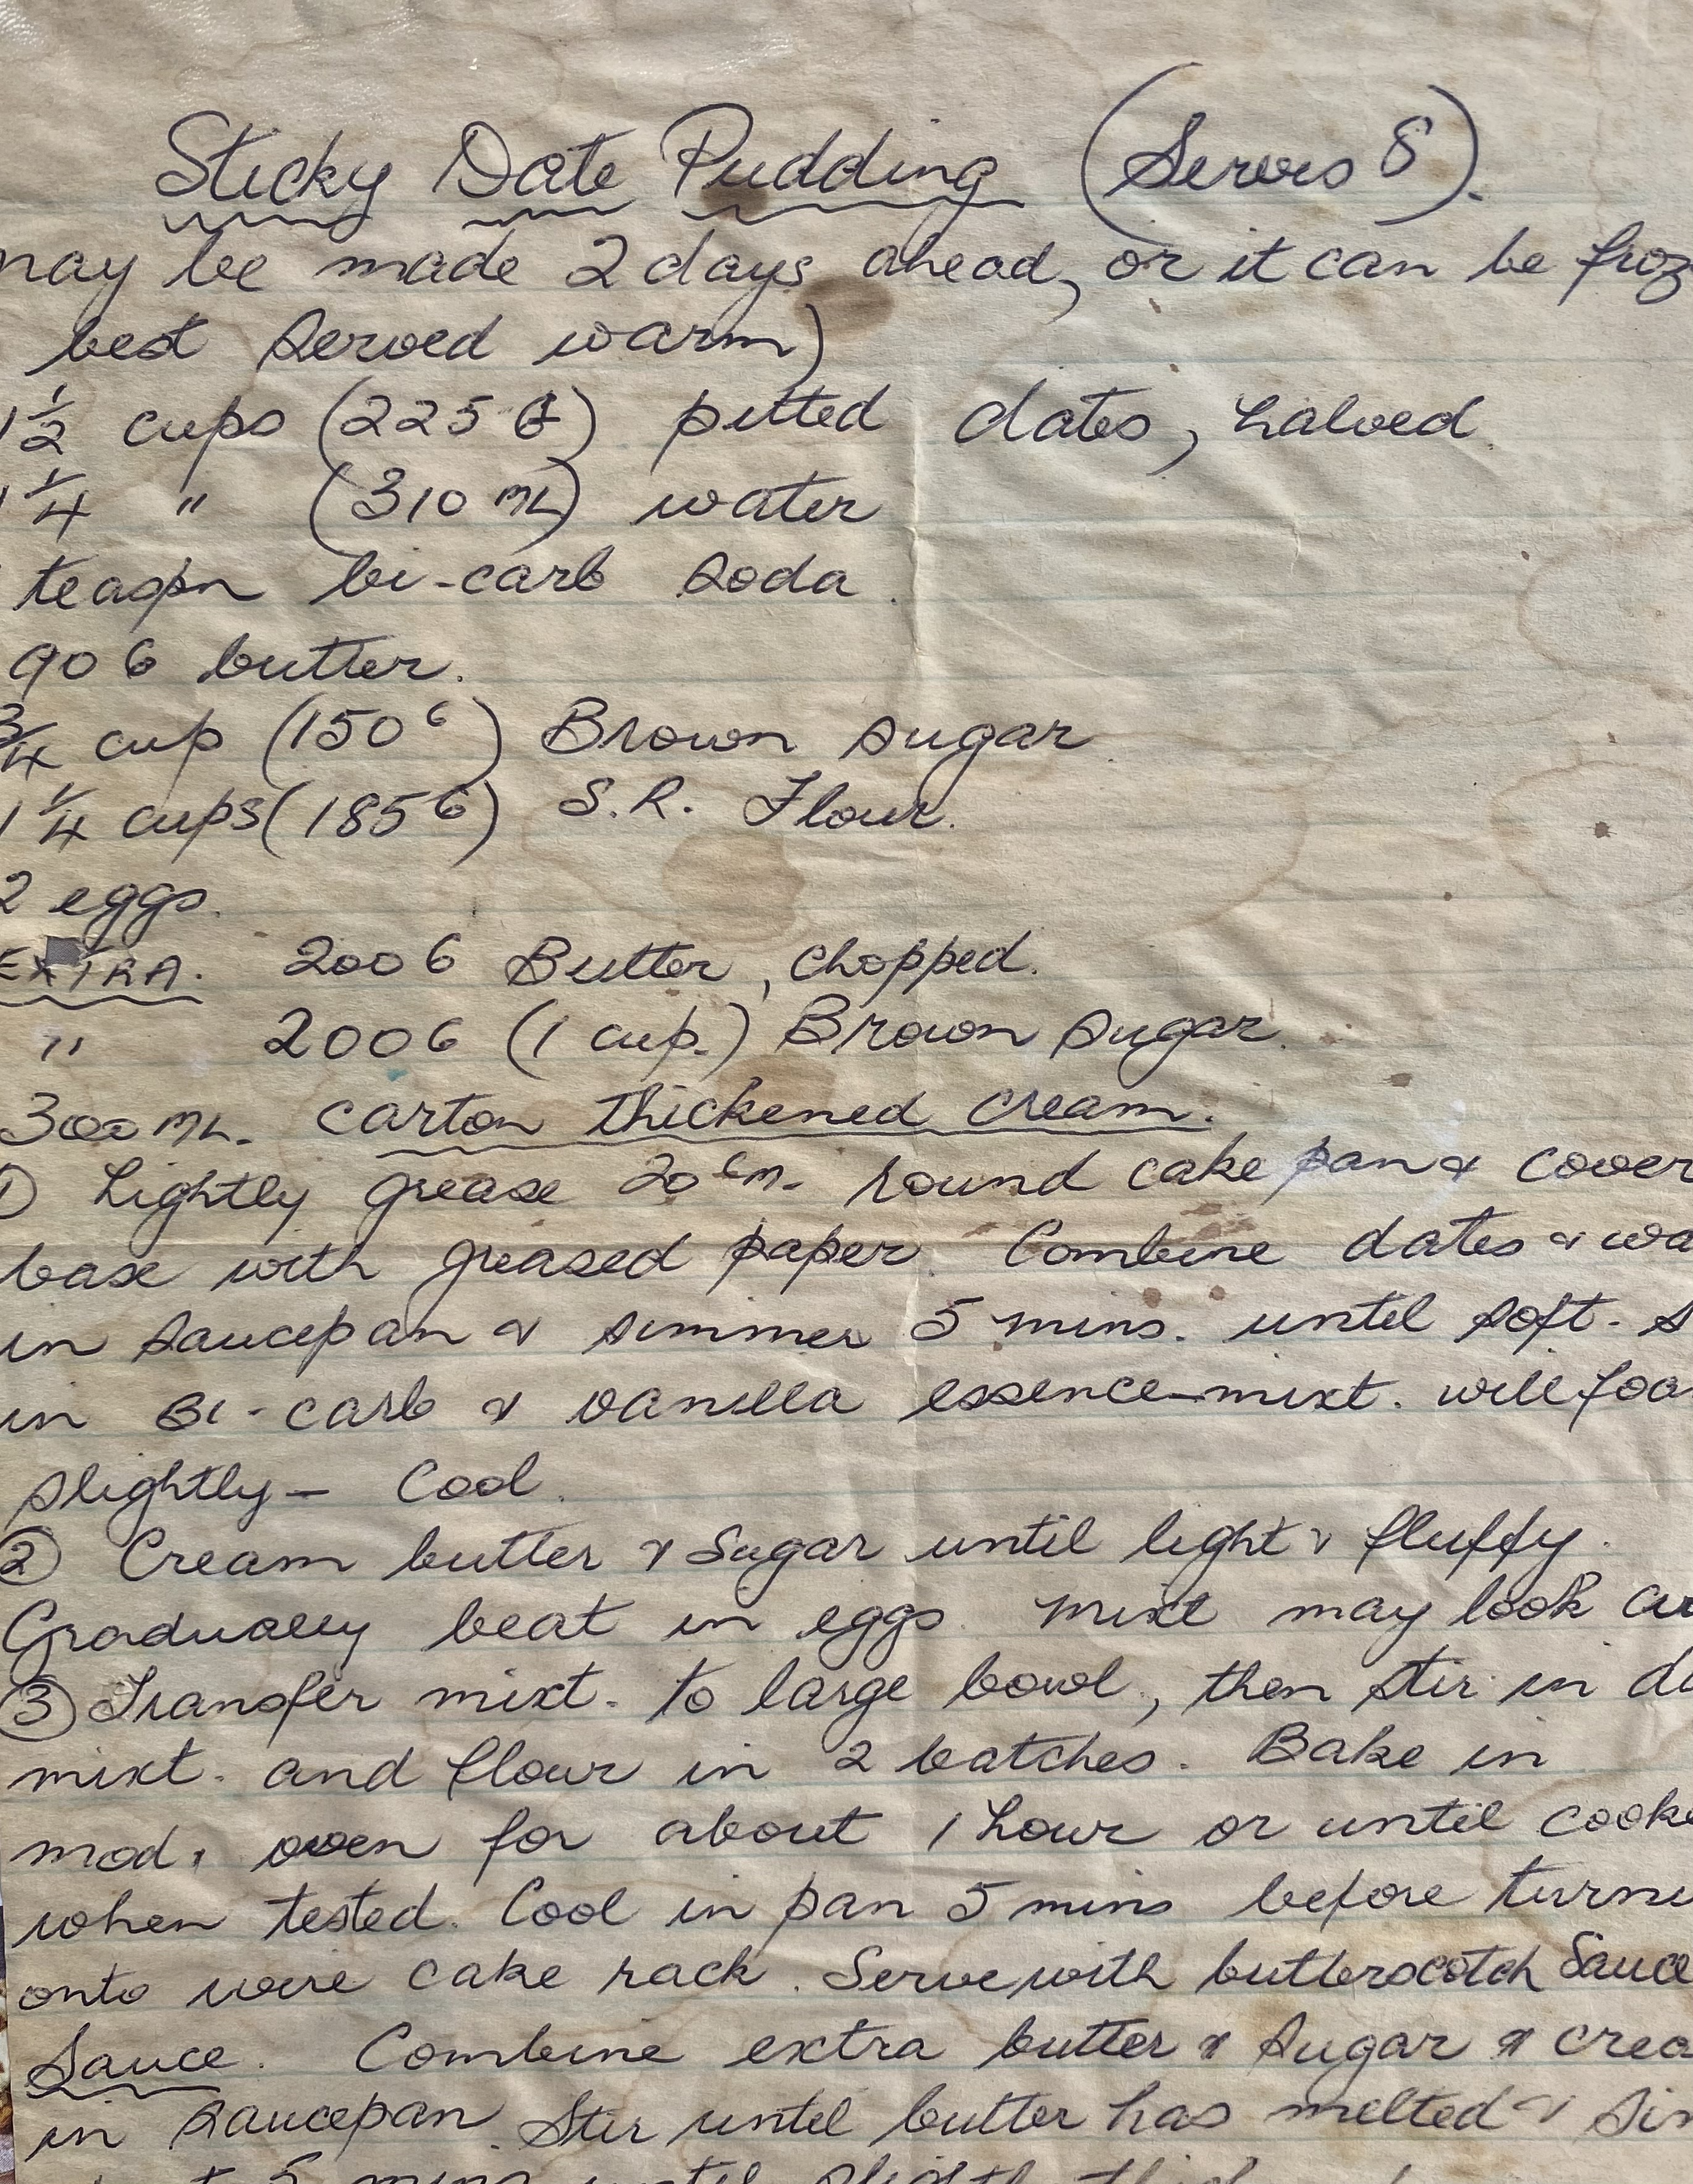 Sticky Date Pudding (Serves 8).
may be made 2 days ahead, or it can be froz
best served warm)
1 1/2 cups (225 G) pitted dates, halved.
1 1/4 " (310 ML) water
teaspn bi-carb soda.
90 G butter.
3/4 cup (150 G) Brown sugar.
1 1/4 cups (185 G) S.R. Flour.
2 eggs.
EXTRA. 200 G Butter, chopped.
" 200 G (1 cup.) Brown sugar.
300 ML. carton thickened cream.
1) Lightly grease 20 cm. round cake pan & cover
base with greased paper. Combine dates & wa
in saucepan & simmer 5 mins. until soft. S
in Bi-carb & vanilla essence - mixt. will foa
slightly - Cool.
2 Cream butter & Sugar until light & fluffy.
Gradually beat in eggs. Mixt may look cu
3 Transfer mixt. to large bowl, then stir in da
mixt. and flour in 2 batches. Bake in
mod. oven for about 1 hour or until cooke
when tested. Cool in pan 5 mins before turni
onto wire cake rack. Serve with butterscotch Sauce
Sauce. Combine extra butter & sugar & crea
in saucepan. Stir until butter has melted & sim
5 mins until slightly